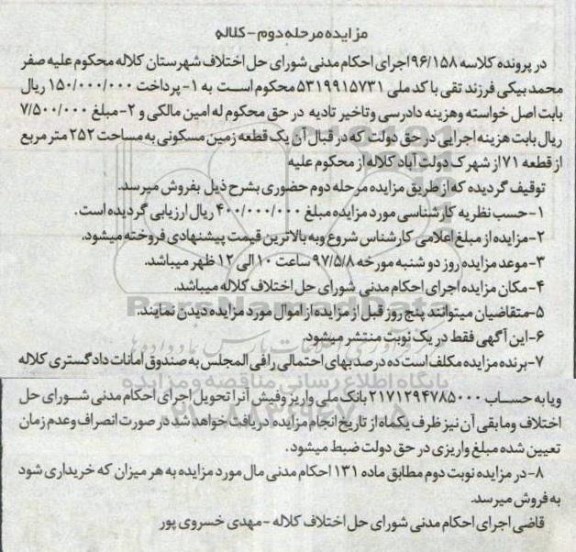 مزایده مرحله دوم - کلاله
در پرونده کلاسه ۹۶/۱۵۸ اجرای احکام مدنی شورای حل اختلاف شهرستان کلاله محکوم علیه صفر
محمد بیکی فرزند تقی با کد ملی ۵۳۱۹۹۱۵۷۳۱ محکوم است به ۱- پرداخت ۱۵۰/۰۰۰/۰۰۰ ریال
بابت اصل خواسته وهزینه دادرسی وتاخیر تادیه در حق محکوم له امین مالکی و ۲- مبلغ ۷/۵۰۰/۰۰۰
ریال بابت هزینه اجرایی در حق دولت که در قبال آن یک قطعه زمین مسکونی به مساحت ۲۵۲ متر مربع
از قطعه ۷۱ از شهرک دولت آباد کلاله از محکوم علیه
توقیف گردیده که از طریق مزایده مرحله دوم حضوری بشرح ذیل بفروش میرسد.
۱- حسب نظریه کارشناسی مورد مزایده مبلغ ۴۰۰/۰۰۰/۰۰۰ ریال ارزیابی گردیده است.
۲- مزایده از مبلغ اعلامی کارشناس شروع وبه بالاترین قیمت پیشنهادی فروخته میشود.
۳- موعد مزایده روز دو شنبه مورخه ۹۷/۵/۸ ساعت ۱۰ الی ۱۲ ظهر میباشد.
۴- مکان مزایده اجرای احکام مدنی شورای حل اختلاف کلاله میباشد.
۵- متقاضیان میتوانند پنج روز قبل از مزایده از اموال مورد مزایده دیدن نمایند.
۶- این آگهی فقط در یک نوبت منتشر میشود
۷- برنده مزایده مکلف است ده درصد بهای احتمالی را فی المجلس به صندوق امانات دادگستری کلاله
ویا به حساب ۲۱۷۱۲۹۴۷۸۵۰۰۰ بانک ملی واریز وفیش آنرا تحویل اجرای احکام مدنی شورای حل
اختلاف ومابقی آن نیز ظرف یکماه از تاریخ انجام مزایده دریافت خواهد شد در صورت انصراف وعدم زمان
تعیین شده مبلغ واریزی در حق دولت ضبط میشود.
۸- در مزایده نوبت دوم مطابق ماده ۱۳۱ احکام مدنی مال مورد مزایده به هر میزان که خریداری شود
به فروش میرسد.
قاضی اجرای احکام مدنی شورای حل اختلاف کلاله - مهدی خسروی پور
ParsNamadData
پایگاه اطلاع رسانی مناقصه و مزایده